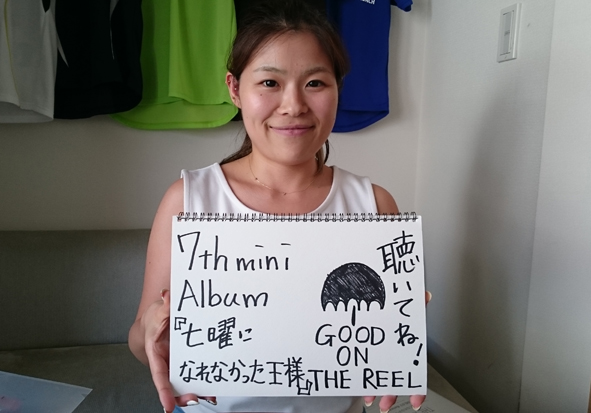 7th mini
Album
『七曜に
なれなかった王様』
聴いてね!
GOOD
ON
THE REEL